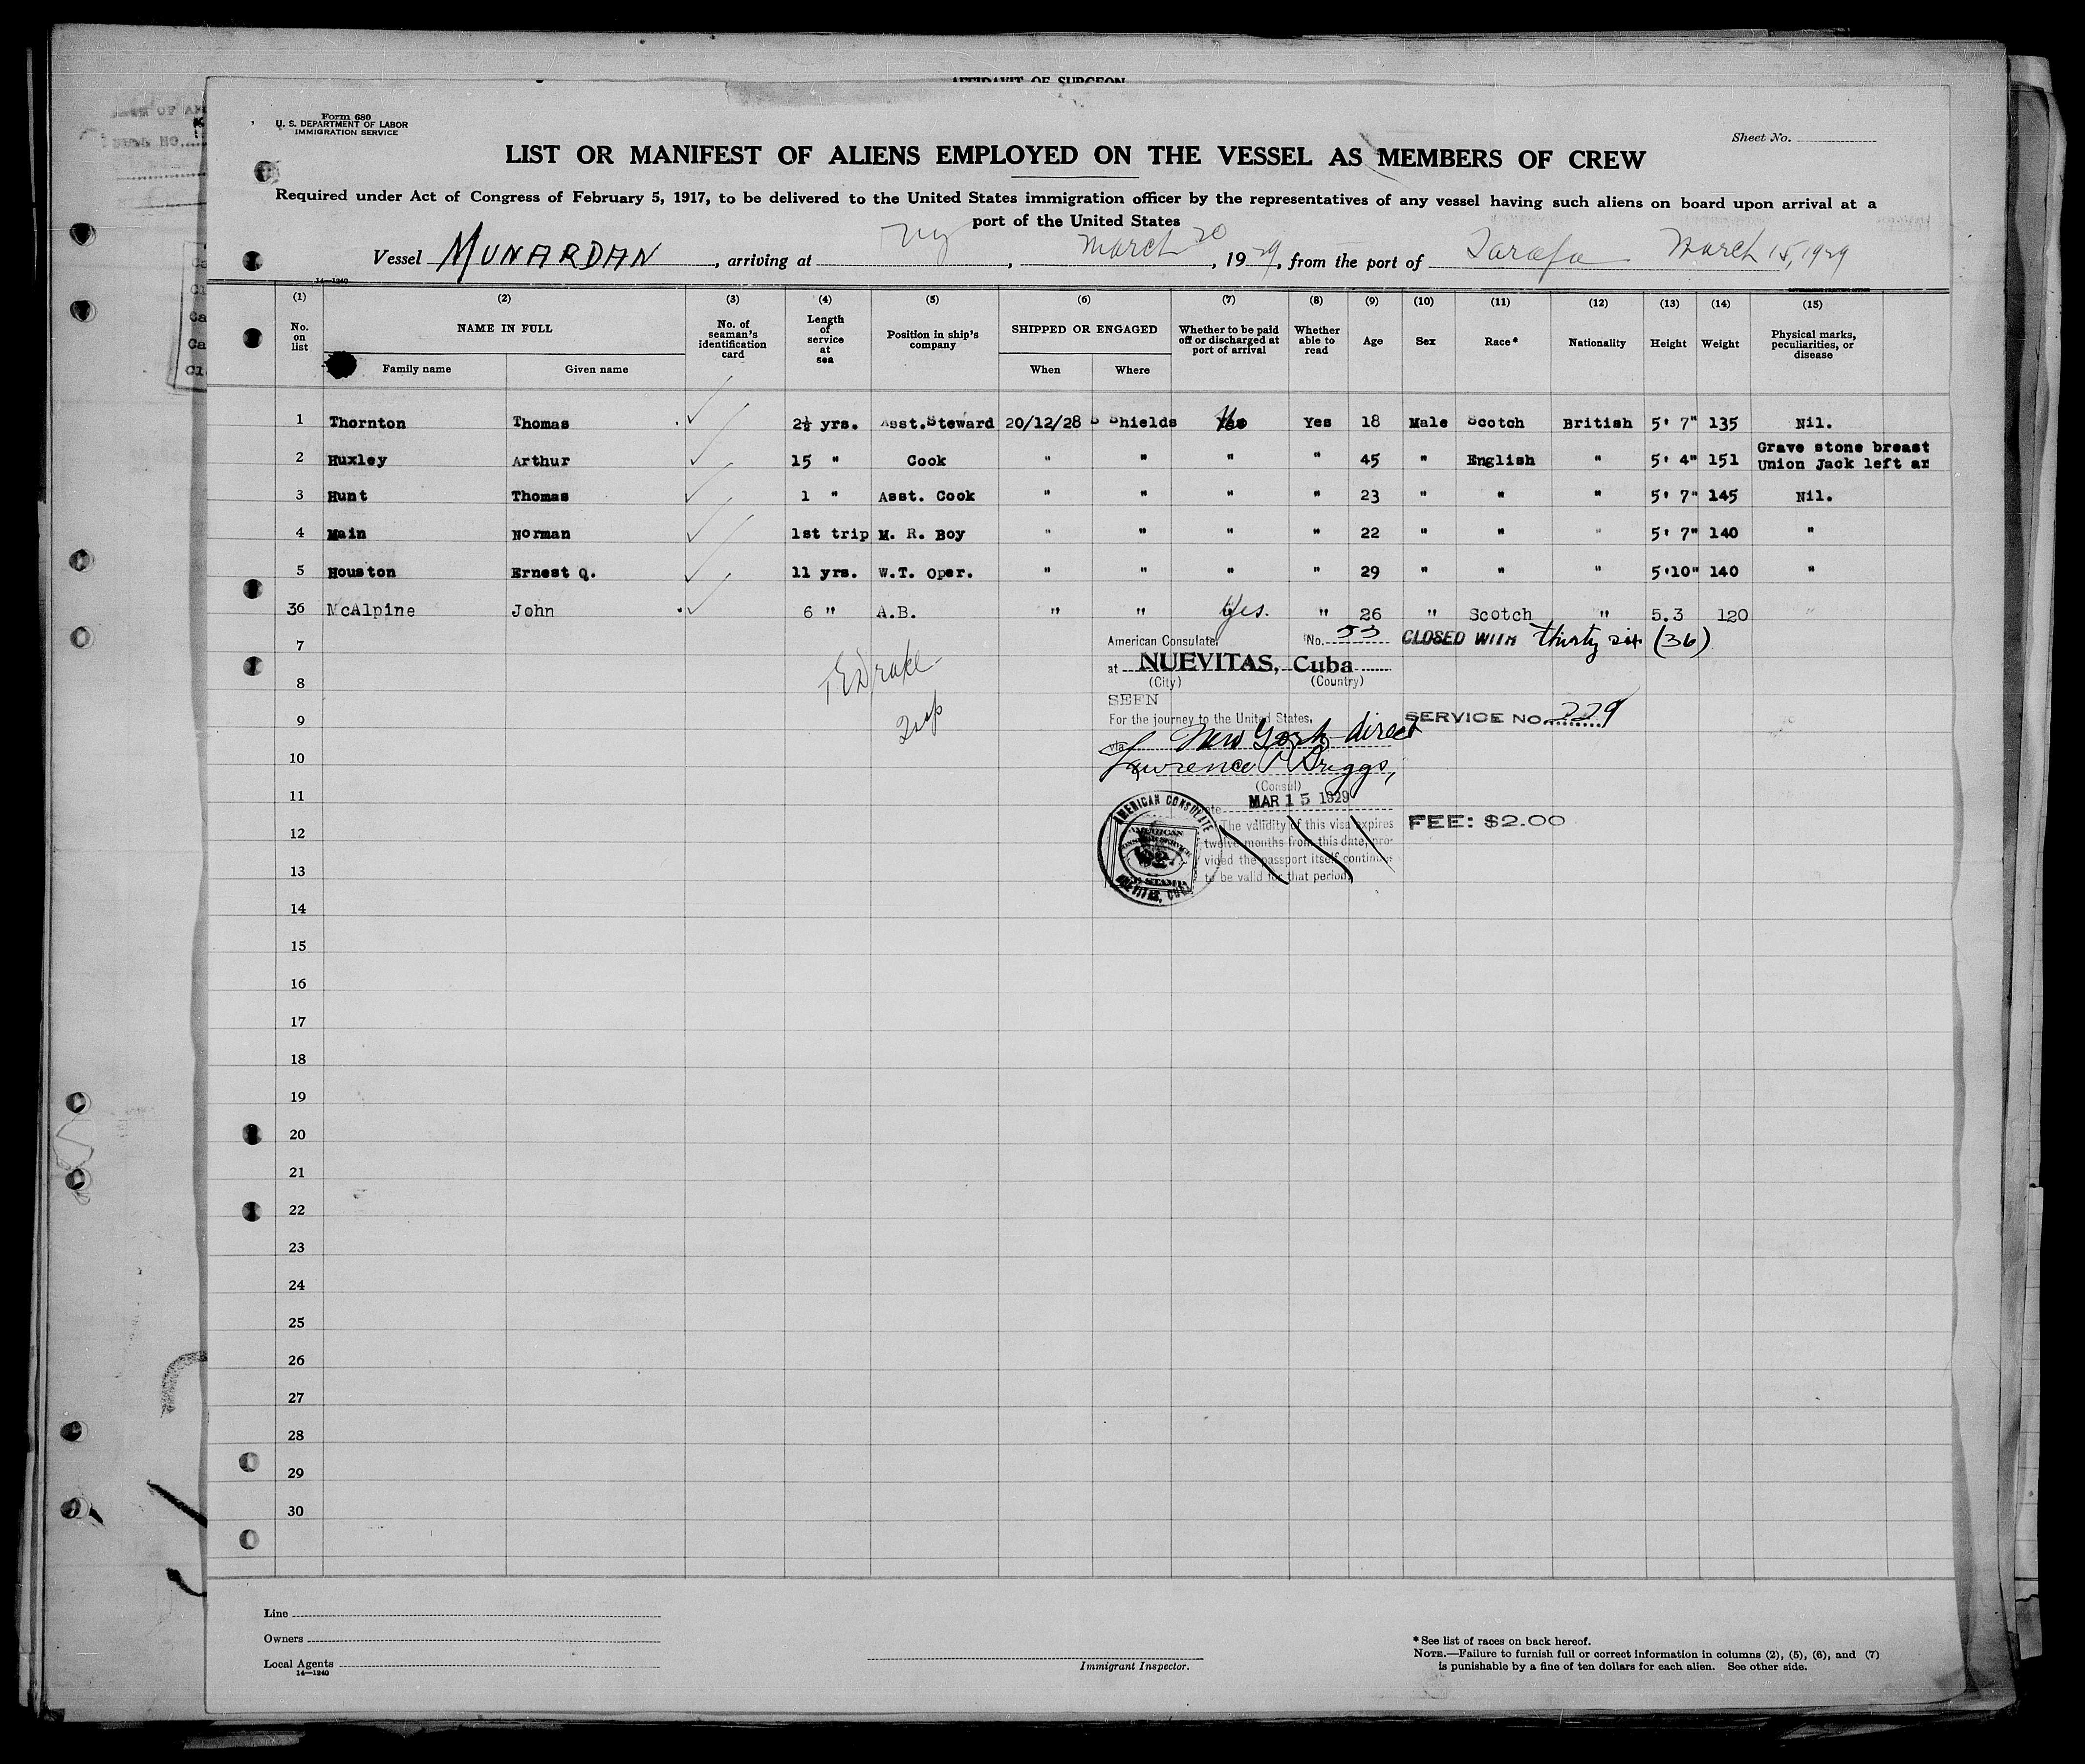 AFFIDAVIT OF SURGEON
Form 680
U. S. DEPARTMENT OF LABOR
IMMIGRATION SERVICE
Sheet No.
LIST OR MANIFEST OF ALIENS EMPLOYED ON THE VESSEL AS MEMBERS OF CREW
Required under Act of Congress of February 5, 1917, to be delivered to the United States immigration officer by the representatives of any vessel having such aliens on board upon arrival at a
port of the United States
Vessel MUNARDAN, arriving at NY, March 20, 1929, from the port of Tarafa March 15, 1929
14-1240
(1) (2) (3) (4) (5) (6) (7) (8) (9) (10) (11) (12) (13) (14) (15)
No. on list NAME IN FULL No. of seaman's identification card Length of service at sea Position in ship's company SHIPPED OR ENGAGED Whether to be paid off or discharged at port of arrival Whether able to read Age Sex Race* Nationality Height Weight Physical marks, peculiarities, or disease
Family name Given name When Where
1 Thornton Thomas 2½ yrs. Asst.Steward 20/12/28 S Shields Yes Yes 18 Male Scotch British 5' 7" 135 Nil.
2 Huxley Arthur 15 " Cook " " " " 45 " English " 5' 4" 151 Grave stone breast
Union Jack left ar
3 Hunt Thomas 1 " Asst. Cook " " " " 23 " " " 5' 7" 145 Nil.
4 Main Norman 1st trip M. R. Boy " " " " 22 " " " 5' 7" 140 "
5 Houston Ernest Q. 11 yrs. W.T. Oper. " " " " 29 " " " 5'10" 140 "
36 McAlpine John 6 " A.B. " " Yes. " 26 " Scotch " 5.3 120 "
7
American Consulate, No. 53 CLOSED WITH thirty six (36)
at NUEVITAS, Cuba
8
(City) (Country)
TEDrake
SEEN
9
For the journey to the United States, SERVICE NO. 229
Insp
via New York direct
10
Lawrence P Briggs,
(Consul)
11
Date MAR 15 1929
12
The validity of this visa expires FEE: $2.00
twelve months from this date, pro-
vided the passport itself continues
13
to be valid for that period.
AMERICAN CONSULATE
NUEVITAS, CUBA
14
15
16
17
18
19
20
21
22
23
24
25
26
27
28
29
30
Line
Owners
Local Agents
14-1240
Immigrant Inspector.
*See list of races on back hereof.
NOTE.—Failure to furnish full or correct information in columns (2), (5), (6), and (7)
is punishable by a fine of ten dollars for each alien. See other side.